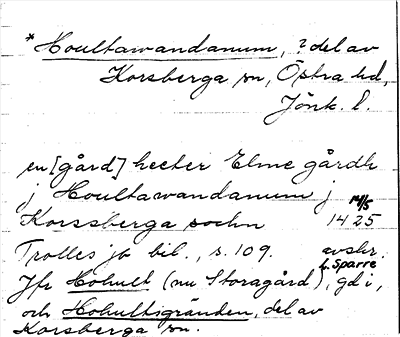 * Houltawandanum, ? del av
Korsberga sn, Östra hd,
Jönk. l.
en [gård] heeter Elme gårdh
j Houltawandanum j
Korssberga sochn 14/5 1425
Trolles jb bil., s. 109. avskr.
L. Sparre
Jfr Hohult (nu Storagård), gd i,
och Hohultsgränden, del av
Korsberga sn.